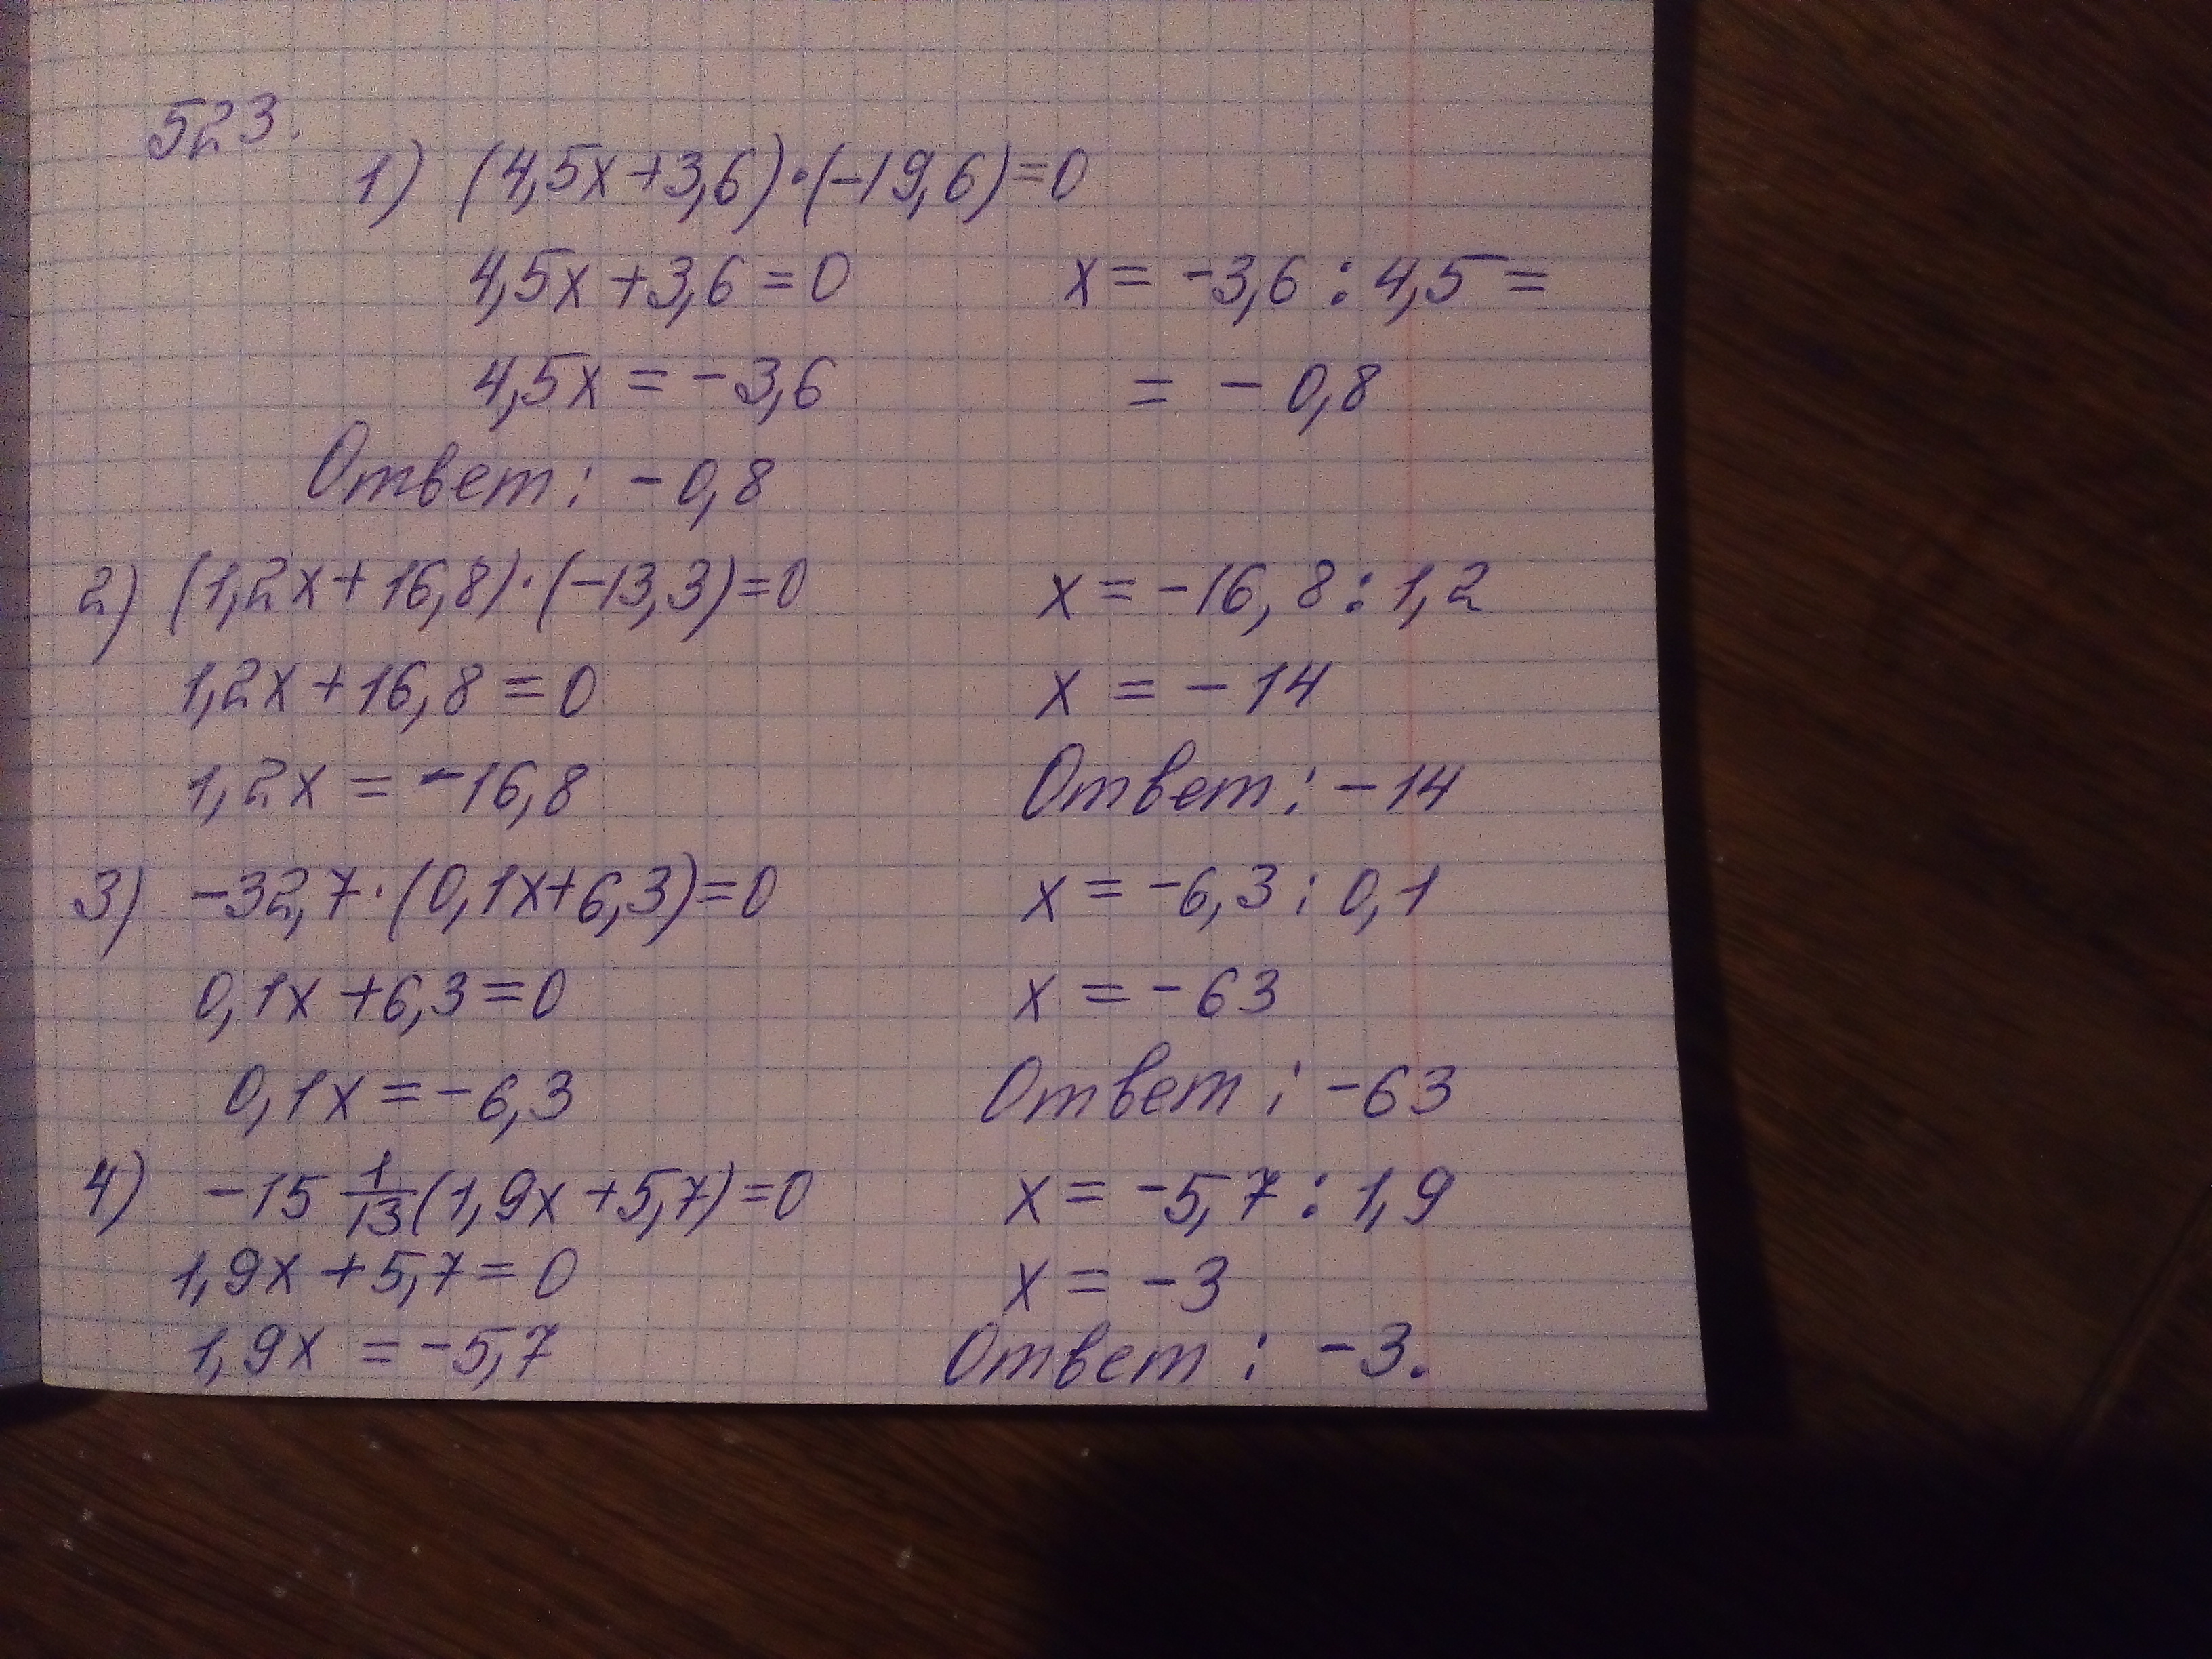 523.
1) (4,5x+3,6)·(-19,6)=0
4,5x+3,6=0
4,5x=-3,6
x=-3,6:4,5=
=-0,8
Ответ: -0,8
2) (1,2x+16,8)·(-13,3)=0
1,2x+16,8=0
1,2x=-16,8
x=-16,8:1,2
x=-14
Ответ: -14
3) -32,7·(0,1x+6,3)=0
0,1x+6,3=0
0,1x=-6,3
x=-6,3:0,1
x=-63
Ответ: -63
4) -15 1/13(1,9x+5,7)=0
1,9x+5,7=0
1,9x=-5,7
x=-5,7:1,9
x=-3
Ответ: -3.